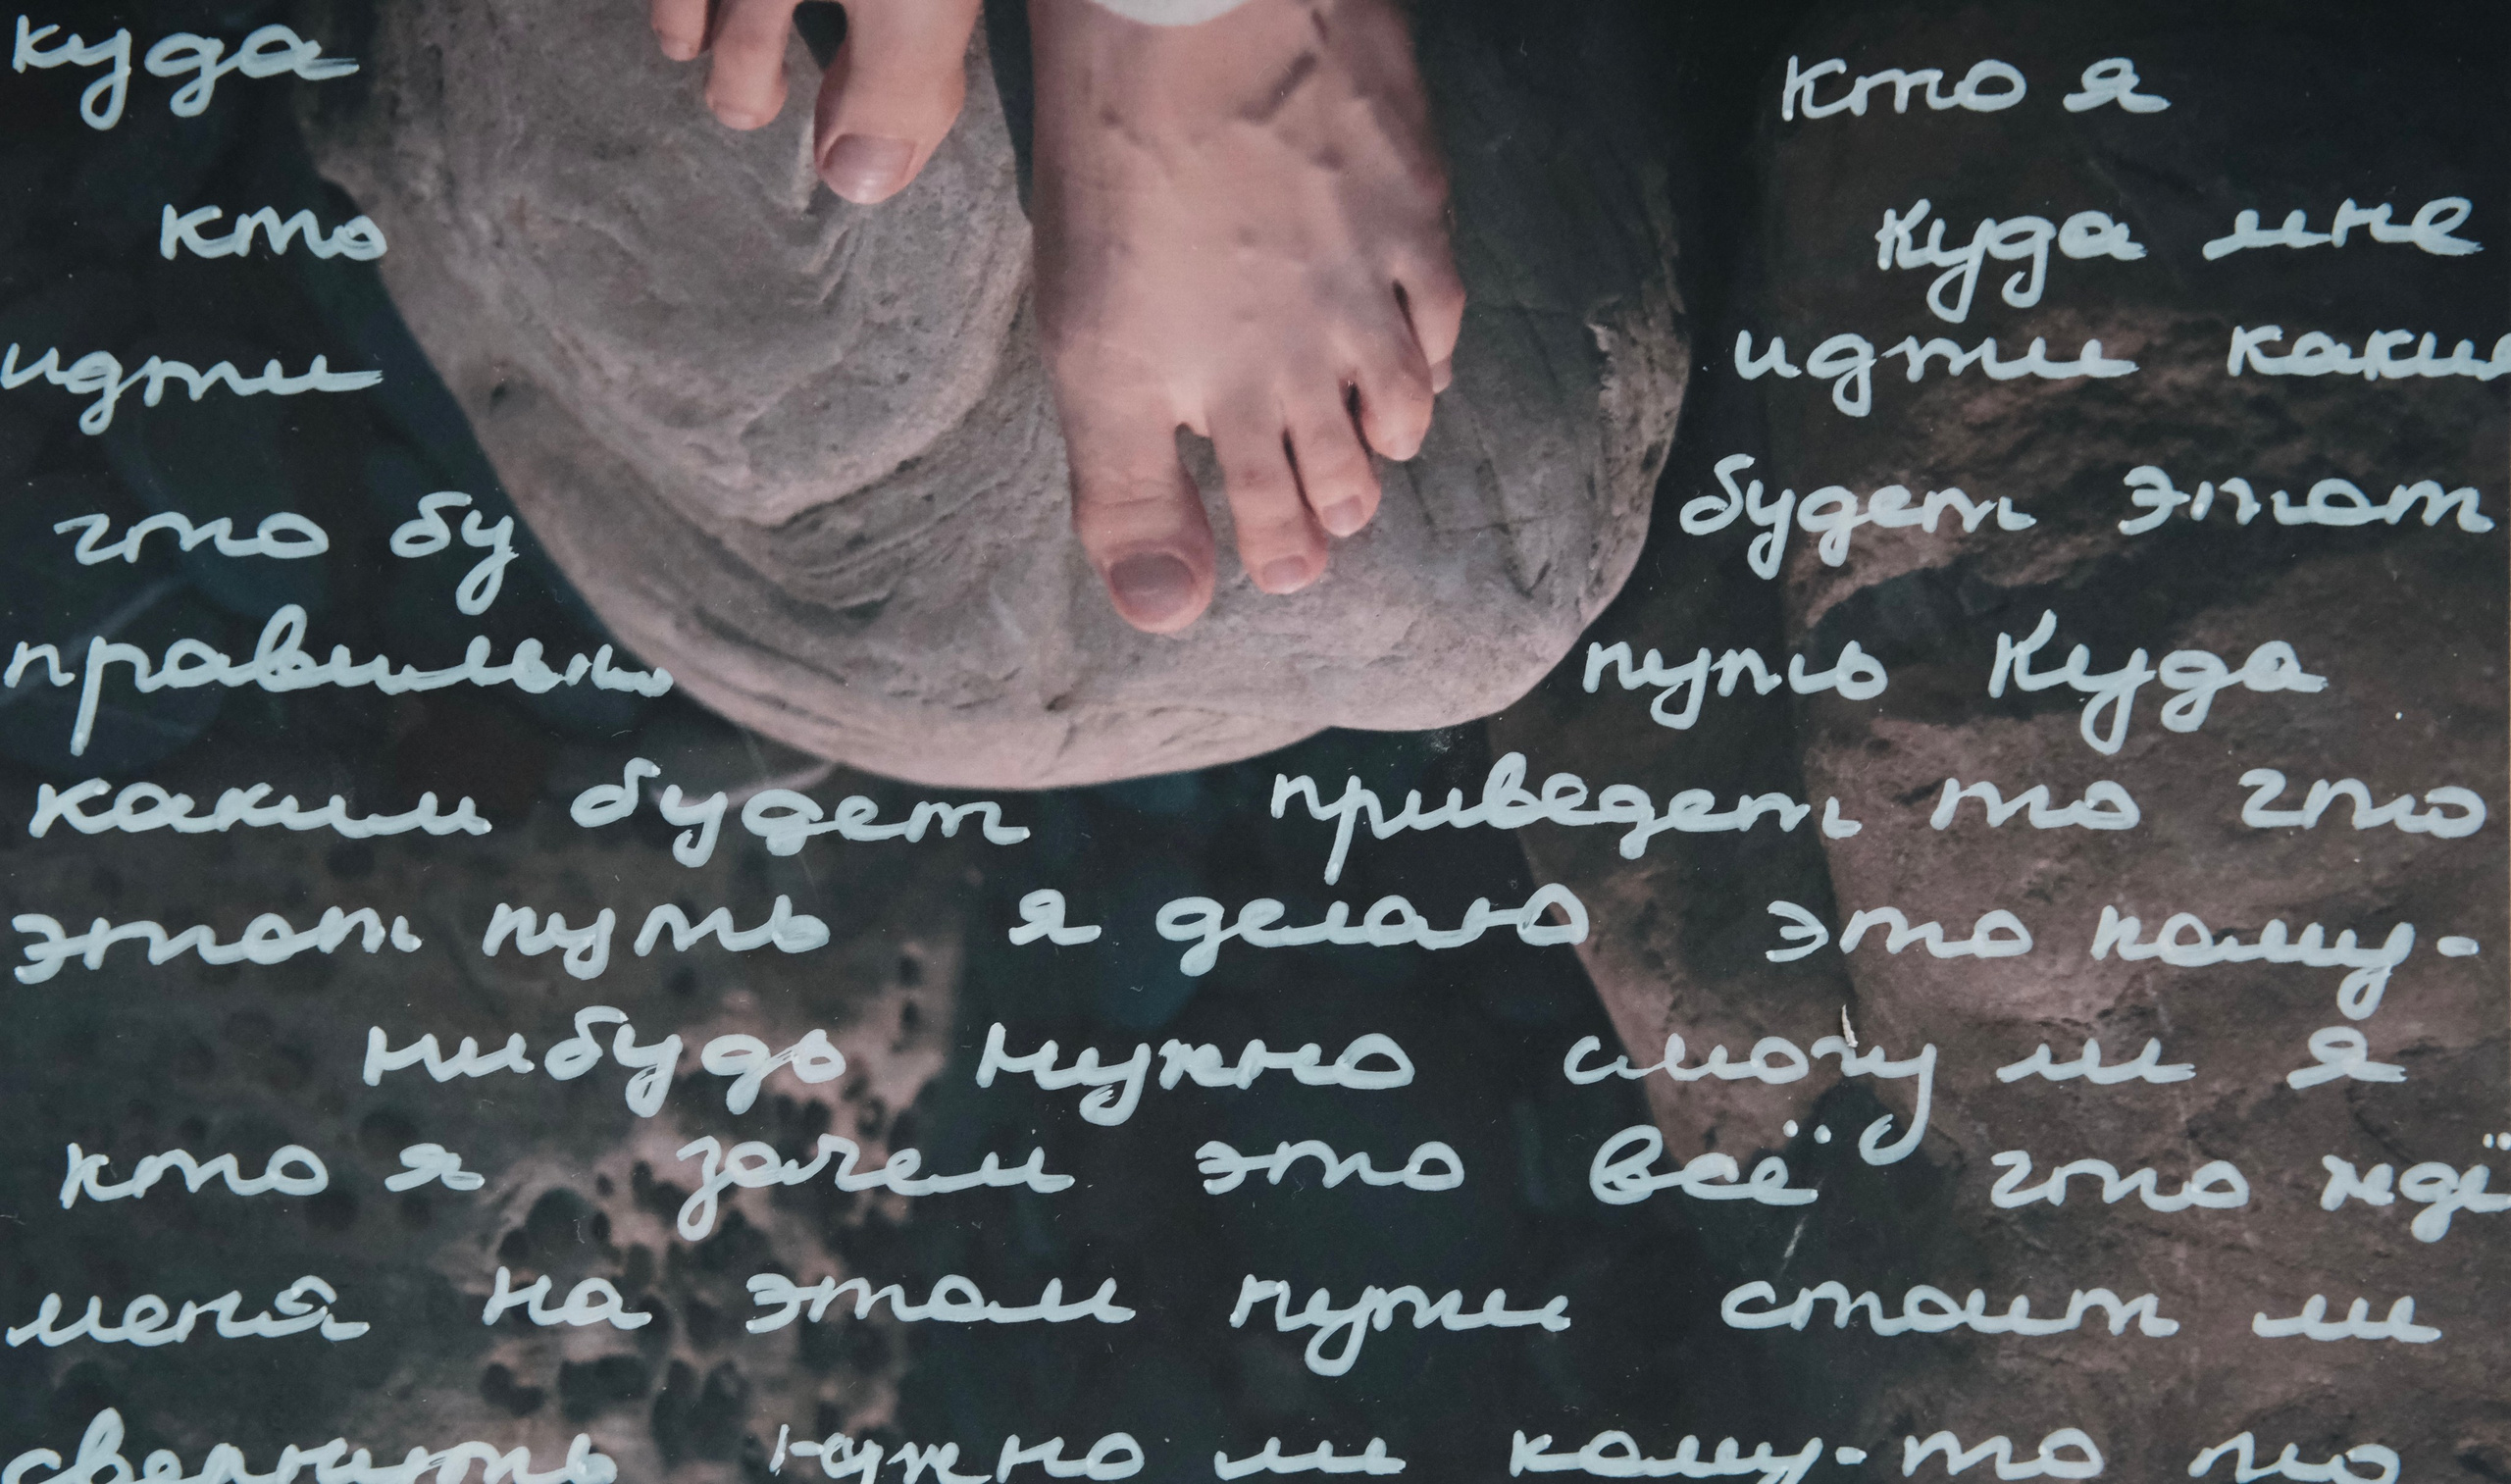 куда
кто
идти
что бу
правильно
кто я
куда мне
идти каким
будет этот
путь куда
каким будет приведет то что
этот путь я делаю это кому-
нибудь нужно смогу ли я
кто я зачем это всё что ждё
меня на этом пути стоит ли
свернуть нужно ли кому-то